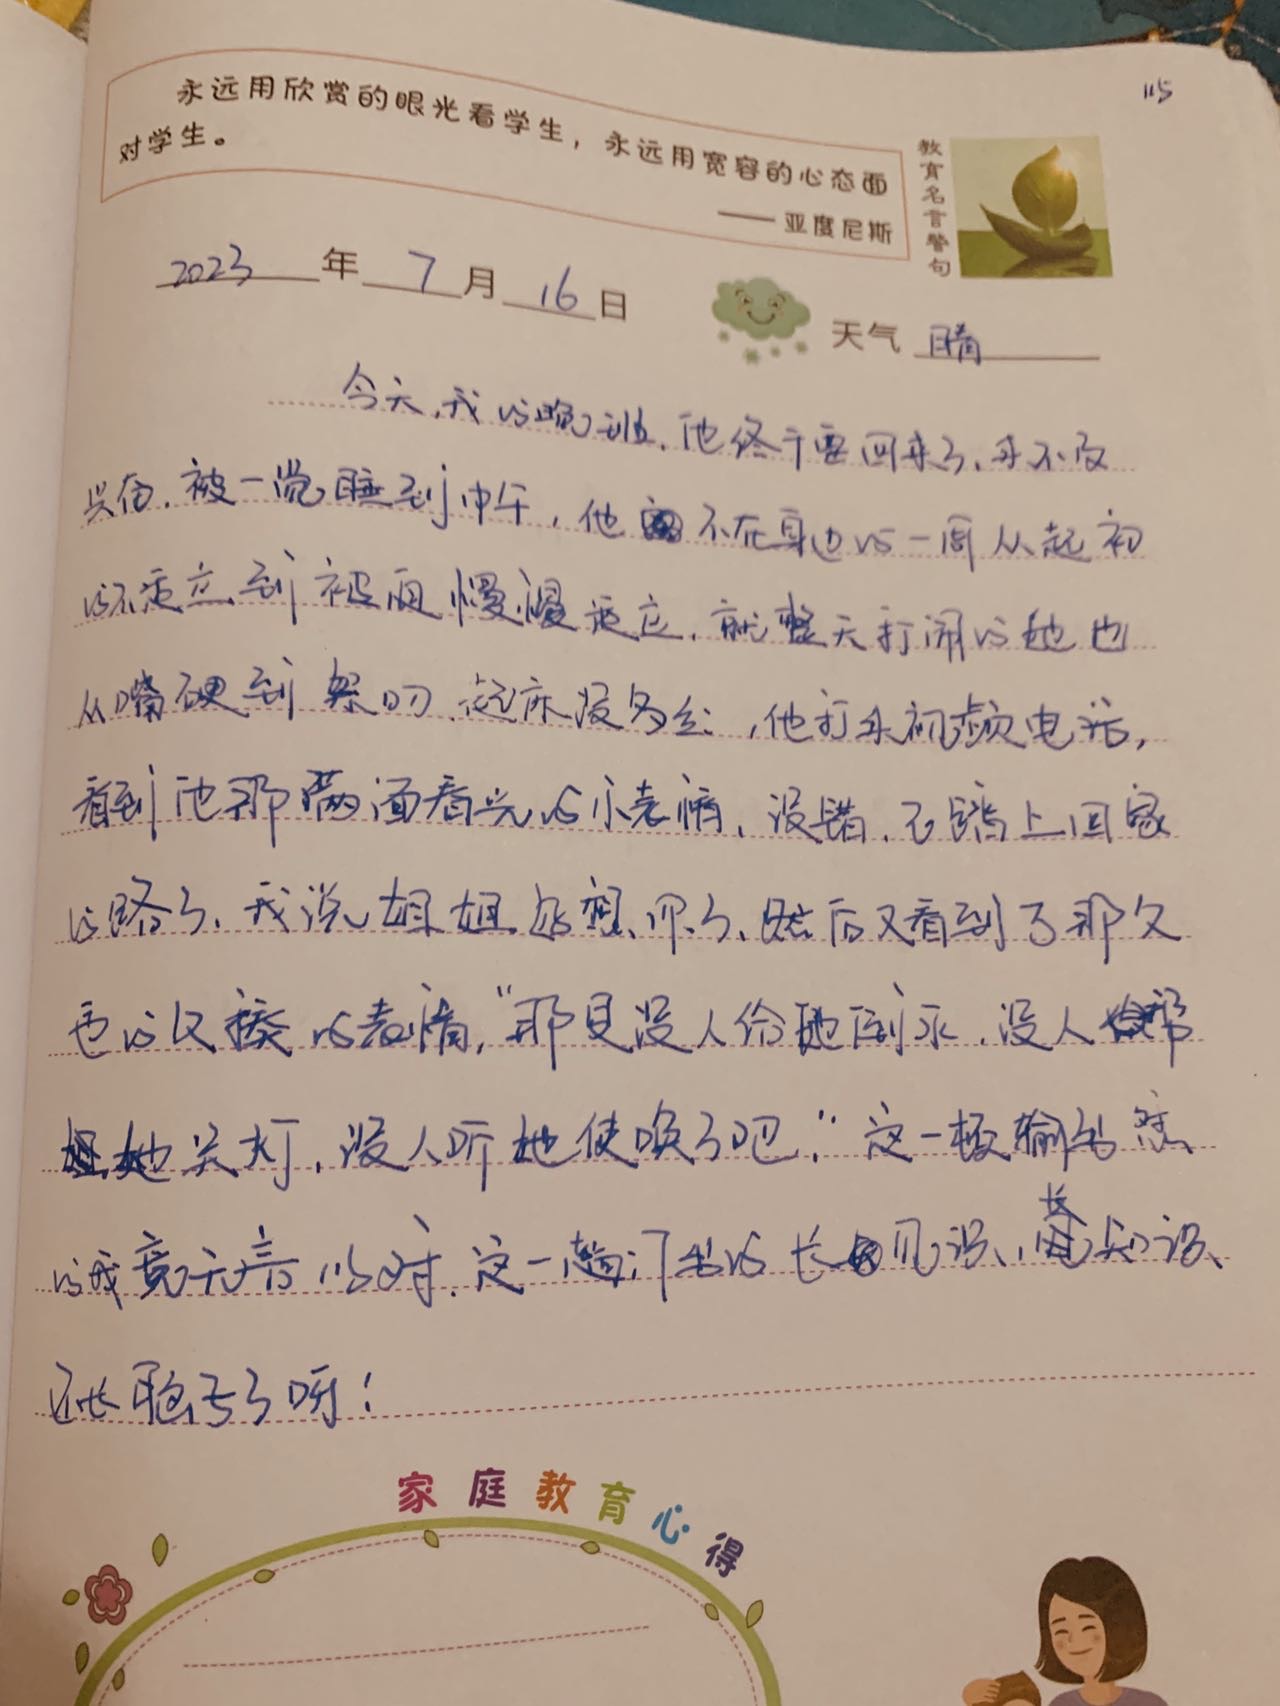 115
永远用欣赏的眼光看学生，永远用宽容的心态面
对学生。
——亚度尼斯
教育名言警句
2023年7月16日
天气 晴
今天，我的晚班，他终于要回来了，来不及
兴奋，被一觉睡到中午，他不在身边的一周从起初
的不适应到被迫慢慢适应，就整天打闹的她也
从嘴硬到 起床没多会，他打来视频电话，
看到他那满面春光的小表情，没错，已踏上回家
的路了，我说姐姐想你了，然后又看到了那久
违的又 的表情，"那是没人给她倒水，没人帮
她关灯，没人听她使唤了吧，"这一顿输出怼
的我竟无言以对，这一趟门出的长见识，长知识，
还长脑子了呀！
家庭教育心得